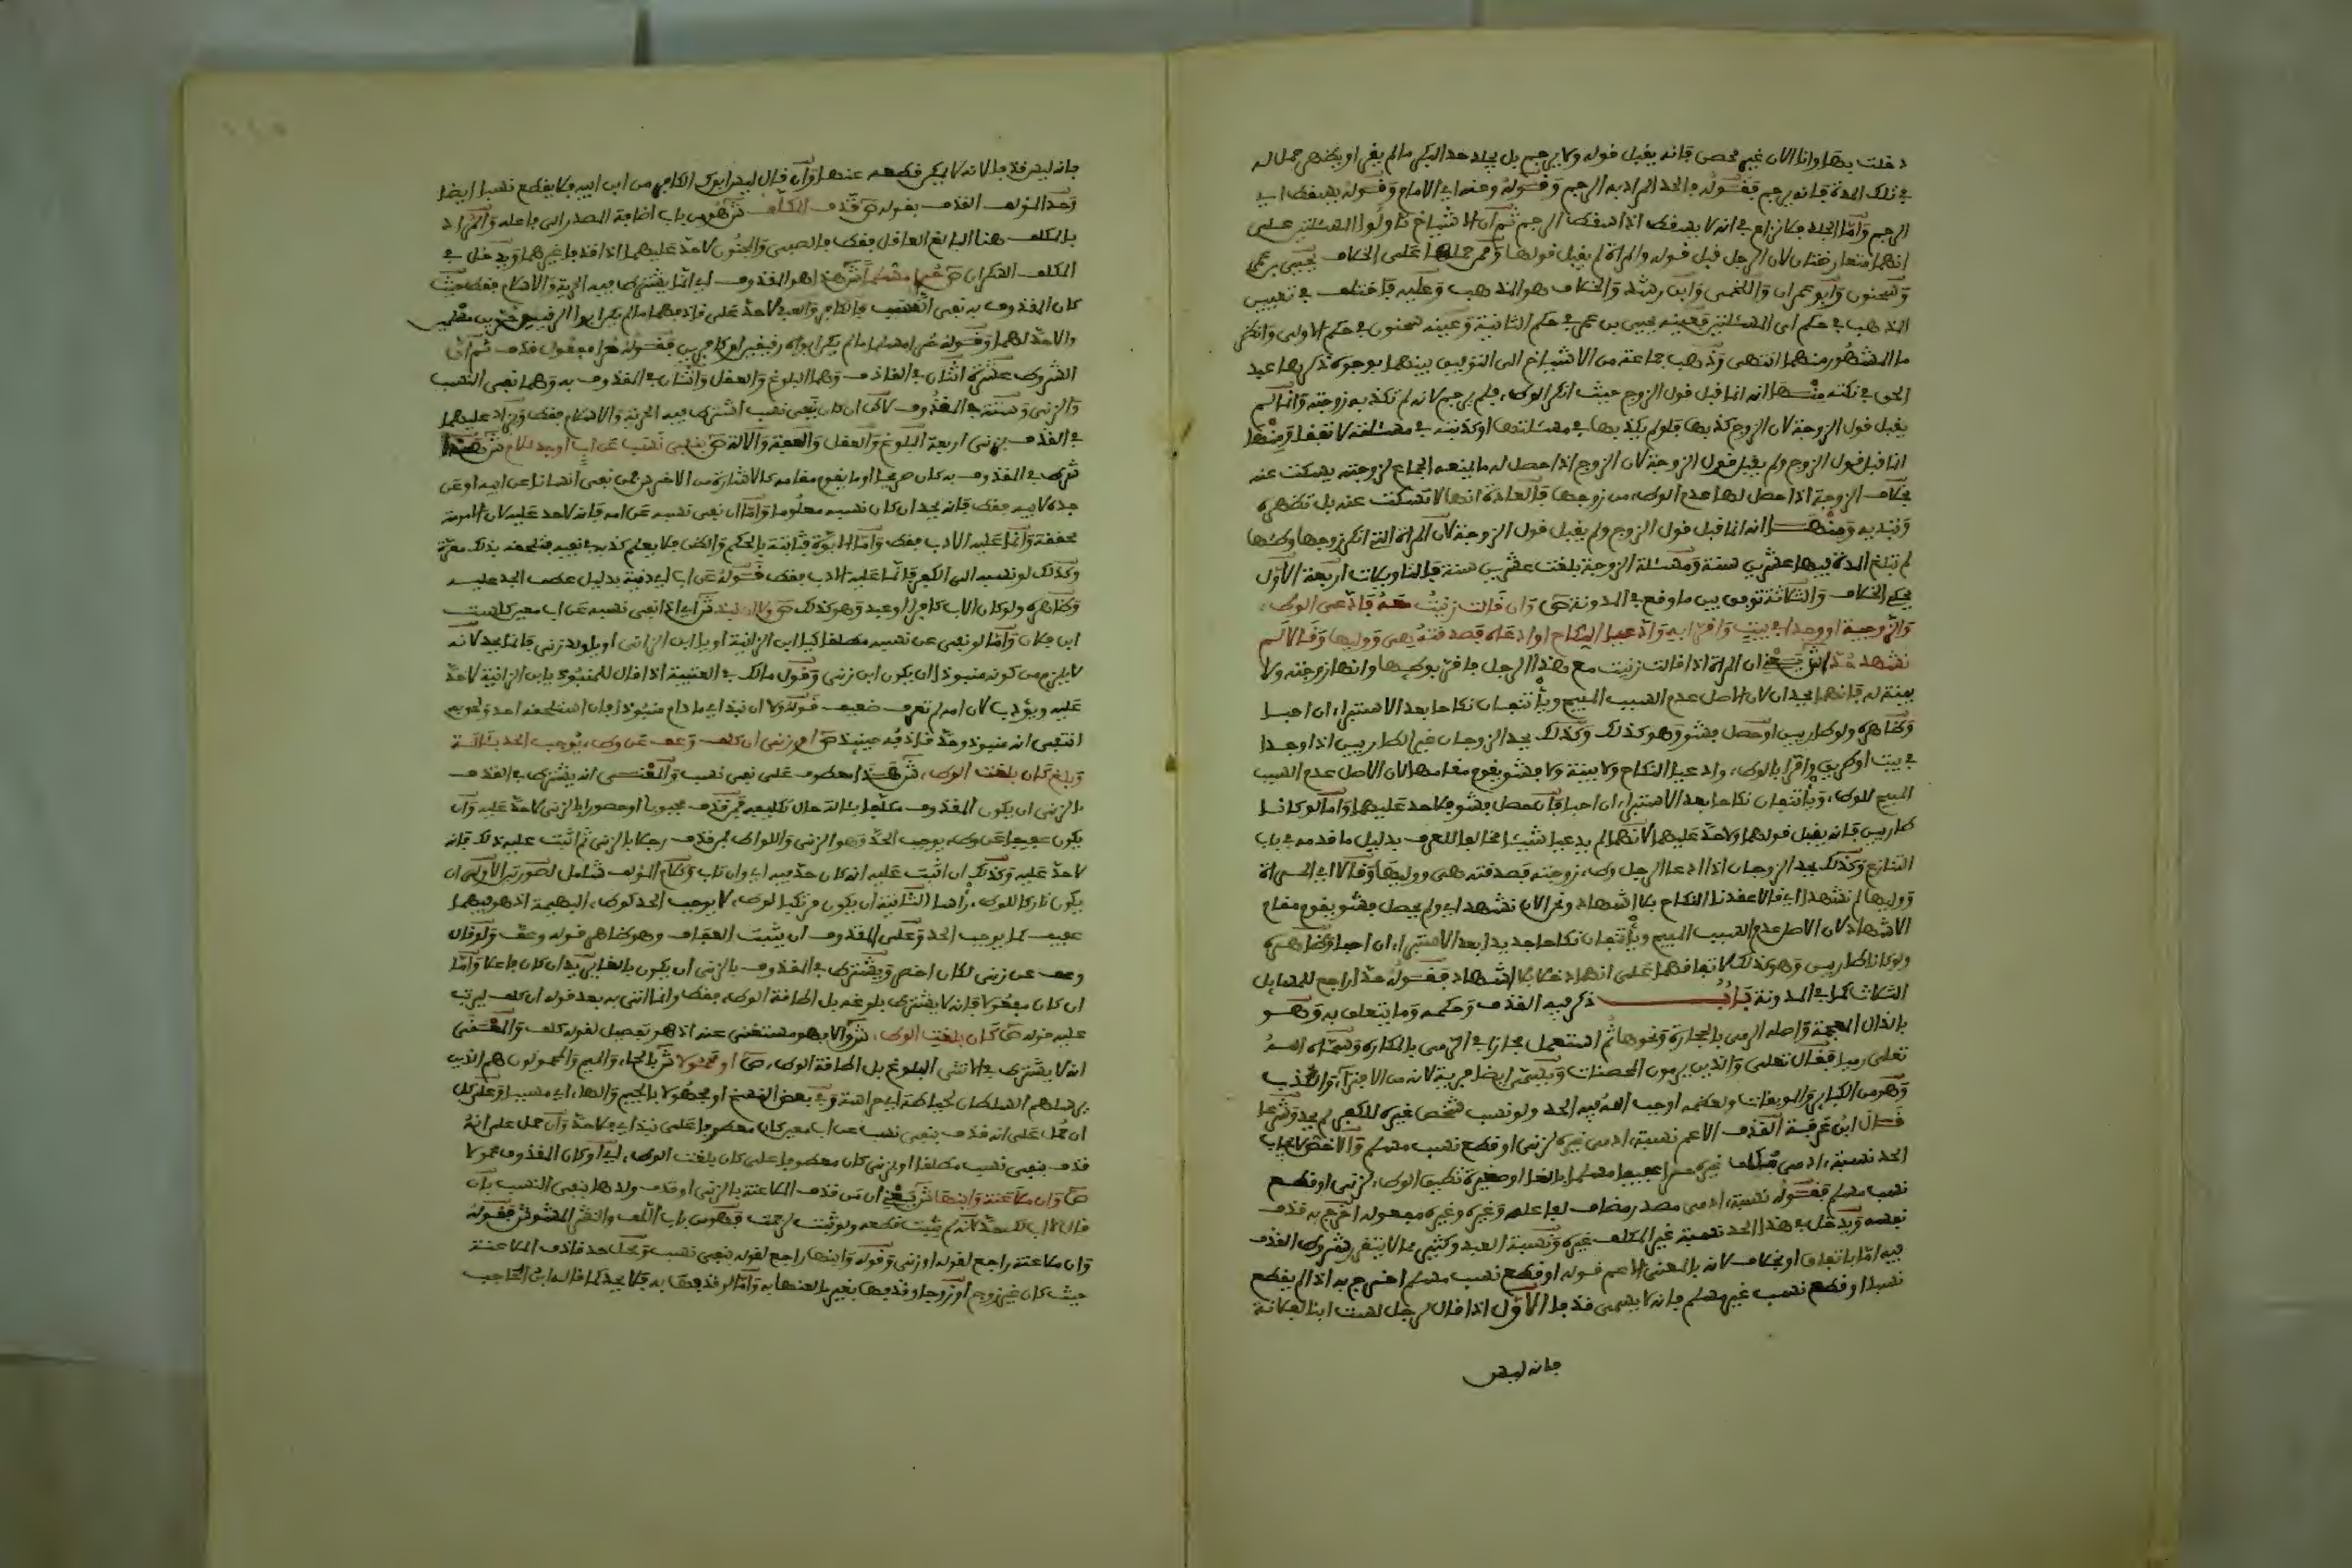 دخلت بها وانا الان غير محصن فانه يقبل قوله ولا يرجم بل يجلد حد البكر ما لم يقر او يظهر حمل له
في تلك المدة فانه يرجم فقوله فالحد المراد به الرجم وقوله وعنه اي الامام وقوله يسقط اي
الرجم واما الجلد فلا نزاع في انه لا يسقط اذا سقط الرجم ثم ان الاشياخ تاولوا المسئلتين على
انهما متعارضتان لان الرجل قبل قوله والمراة لم يقبل قولها وممن حملهما على الخلاف يحيى بن عمر
وسحنون وابو عمران واللخمي وابن رشد والخلاف هو المذهب وعليه فاختلف في تعيين
المذهب في حكم اي المسئلتين فعينه يحيى بن عمر في حكم الثانية وعينه سحنون في حكم الاولى وانظر
ما المشهور منهما انتهى وذهب جماعة من الاشياخ الى التوفيق بينهما بوجوه ذكرها عبد
الحق في نكته منها انه انما قبل قول الزوج حيث انكر الوطء فلم يرجم لانه لم تكذبه زوجته وانما لم
يقبل قول الزوجة لان الزوج كذبها فلو لم يكذبها في مسئلتها او كذبته في مسئلته لاتفقا ومنها
انما قبل قول الزوج ولم يقبل قول الزوجة لان الزوج اذا حصل له ما يمنعه الجماع لزوجته يسكت عنه
بخلاف الزوجة اذا حصل لها عدم الوطء من زوجها فالعادة انها لا تسكت عنه بل تظهره
وتبديه ومنها انه انما قبل قول الزوج ولم يقبل قول الزوجة لان المراة التي انكر زوجها وطئها
لم تبلغ المدة فيها عشرين سنة ومسئلة الزوجة بلغت عشرين سنة فالتاويلات اربعة الاول
يحكي الخلاف والثلاثة توفق بين ما وقع في المدونة ص وان قالت زنيت معه فادعى الوطء
والزوجية او وجدا في بيت واقرا به وادعيا النكاح او ادعاه فصدقته هي ووليها وقالا لم
نشهد حدا ش يعني ان المراة اذا قالت زنيت مع هذا الرجل فاقر بوطئها وانها زوجته ولا
بينة له فانهما يحدان لان الاصل عدم السبب المبيح وياتنفان نكاحا بعد الاستبراء ان احبا
وظاهره ولو طاريين او حصل فشو وهو كذلك وكذلك يحد الزوجان غير الطاريين اذا وجدا
في بيت او طريق واقرا بالوطء وادعيا النكاح ولا بينة ولا فشو يقوم مقامها لان الاصل عدم السبب
المبيح للوطء وياتنفان نكاحا بعد الاستبراء ان احبا فان حصل فشو فلا حد عليهما واما لو كانا
طاريين فانه يقبل قولهما ولا حد عليهما لانهما لم يدعيا شيئا مخالفا للعرف بدليل ما قدمه في باب
التنازع وكذلك يحد الزوجان اذا ادعا الرجل وطء زوجته فصدقته هي ووليها وقالا اي المراة
ووليها لم نشهد اي قالا عقدنا النكاح بلا اشهاد ونحن الان نشهد اي ولم يحصل فشو يقوم مقام
الاشهاد لان الاصل عدم السبب المبيح وياتنفان نكاحا جديدا بعد الاستبراء ان احبا وظاهره
ولو كانا طاريين وهو كذلك لاتفاقهما على انهما دخلا بلا اشهاد فقوله حدا راجع للمسايل
الثلاث كما في المدونة باب ذكر فيه القذف وحكمه وما يتعلق به وهو
بالذال المعجمة واصله الرمي بالحجارة ونحوها ثم استعمل مجازا في الرمي بالمكاره وسماه الله
تعالى رميا فقال تعالى والذين يرمون المحصنات ويسمى ايضا فرية لانه من الافتراء والكذب
وهو من الكباير والموبقات ولعظمه اوجب الله فيه الحد ولو نسب شخص غيره للكفر لم يحد وشرعا
قال ابن عرفة القذف الاعم نسبة ادمي غيره لزنى او قطع نسب مسلم والاخص لايجاب
الحد نسبة ادمي مكلف غيره حرا عفيفا مسلما بالغا او صغيرة تطيق الوطء لزنى او قطع
نسب مسلم فقوله نسبة ادمي مصدر مضاف لفاعله وغيره وغيره مفعوله اخرج به قذف
نفسه ويدخل في هذا الحد نسبة غير المكلف غيره ونسبة العبد وكثير مما لا ينفي شروط القذف
فيه اما باتفاق او بخلاف لانه بالمعنى الاعم قوله او قطع نسب مسلم اخرج به اذا لم يقطع
نسبا او قطع نسب غير مسلم فانه لا يسمى قذفا الاول اذا قال لرجل لست ابنا لفلانة
فانه ليس
فانه ليس قذفا لانه لا يمكن قطعه عنها وان قال ليس ابوك الكافر من ابن ابيه فلا يقطع نسبا ايضا
وحد المؤلف القذف بقوله ص قذف المكلف ش هو من باب اضافة المصدر الى فاعله والمراد
بالمكلف هنا البالغ العاقل فقط فالصبي والمجنون لا حد عليهما اذا قذفا غيرهما ويدخل في
المكلف السكران ص حرا مسلما ش هذا هو المقذوف اي انما يشترط فيه الحرية والاسلام فقط حيث
كان المقذوف به نفي النسب فالكافر والعبد لا حد على قاذفهما ما لم يكن ابوا الرقيق حرين مسلمين
والا حد لهما وقوله حرا مسلما ما لم يكن ابواه رقيقين او كافرين فقوله حرا مفعول قذف ثم ان
الشروط عشرة اثنان في القاذف وهما البلوغ والعقل واثنان في المقذوف به وهما نفي النسب
والزنى وستة في المقذوف لاكن ان كان بنفي نسب اشترط فيه الحرية والاسلام فقط وزاد عليهما
في القذف بزنى اربعة البلوغ والعقل والعفة والالة ص بنفي نسب عن اب او جد لا ام ش هذا
شرط في المقذوف به كان صريحا او ما يقوم مقامه كالاشارة من الاخرس فمن نفى انسانا عن ابيه او عن
جده لابيه فقط فانه يحد ان كان نسبه معلوما واما ان نفى نسبه عن امه فانه لا حد عليه لان امومته
محققة وانما عليه الادب فقط واما الابوة فثابتة بالحكم والظن فلا يعلم كذبه في نفيه فتلحقه بذلك معرة
وكذلك لو نسبه الى الكفر فانما عليه الادب فقط قوله عن اب اي دنية بدليل عطف الجد عليه
وظاهره ولو كان الاب كافرا او عبدا وهو كذلك ص ولا ان نبذ ش اي اذا نفى نسبه عن اب معين كلست
ابن فلان واما لو نفى عن نسبه مطلقا كيا ابن الزانية او يا ابن الزاني او يا ولد زنى فانما يحد لانه
لا يلزم من كونه منبوذا ان يكون ابن زنى وقول مالك في العتبية اذا قال للمنبوذ يا ابن الزانية لا حد
عليه ويؤدب لان امه لم تعرف ضعيف قوله ولا ان نبذ اي ما دام منبوذا فان استلحقه احد ولحق به
انتفى انه منبوذ وحد قاذفه حينيذ ص او زنى ان كلف وعف عن وطء يوجب الحد بئالة
وبلغ كان بلغت الوطء ش هذا معطوف على نفي نسب والمعنى انه يشترط في القذف
بالزنى ان يكون المقذوف مكلفا بئالة حال تكليفه فمن قذف مجبوبا او حصورا بالزنى لا حد عليه وان
يكون عفيفا عن وطء يوجب الحد وهو الزنى واللواط فمن قذف رجلا بالزنى ثم اثبت عليه ذلك فانه
لا حد عليه وكذلك ان اثبت عليه انه كان حد فيه اي وان تاب وكلام المؤلف شامل لصورتين الاولى ان
يكون تاركا للوطء راسا الثانية ان يكون مرتكبا لوطء لا يوجب الحد كوطء البهيمة اذ هو فيهما
عفيف عما يوجب الحد وعلى المقذوف ان يثبت العفاف وهو ظاهر قوله وعف ولو قال
وعف عن زنى لكان اخصر ويشترط في المقذوف بالزنى ان يكون بالغا اي يحد ان كان فاعلا واما
ان كان مفعولا فانه لا يشترط بلوغه بل اطاقة الوطء فقط وانما اتى به بعد قوله ان كلف ليرتب
عليه قوله ص كان بلغت الوطء ش والا فهو مستغنى عنه اذ هو تفصيل لقوله كلف والمعنى
انه لا يشترط في الانثى البلوغ بل اطاقة الوطء ص او محمولا ش بالحاء والميم والمحمولون هم الذين
يرسلهم السلطان لحياطة اي حراسة وفي بعض النسخ او مجهولا بالجيم والهاء اي مسبيا وعلى كل
ان حمل على انه قذف بنفي نسب عن اب معين كان معطوفا على نبذ اي فلا حد وان حمل على انه
قذف بنفي نسب مطلقا او بزنى كان معطوفا على كان بلغت الوطء اي او كان المقذوف محمولا
ص وان ملاعنة وابنها ش يعني ان من قذف الملاعنة بالزنى او قذف ولدها بنفي النسب بان
قال لا اب لك حد لانه لم يثبت قطعه ولو ثبت لرجمت فهو من باب اللف والنشر المشوش فقوله
وان ملاعنة راجع لقوله او زنى وقوله وابنها راجع لقوله بنفي نسب ومحل حد قاذف الملاعنة
حيث كان غير زوج او زوجا وقذفها بغير ما لاعنها به واما لو قذفها به فلا يحد كما قاله ابن الحاجب